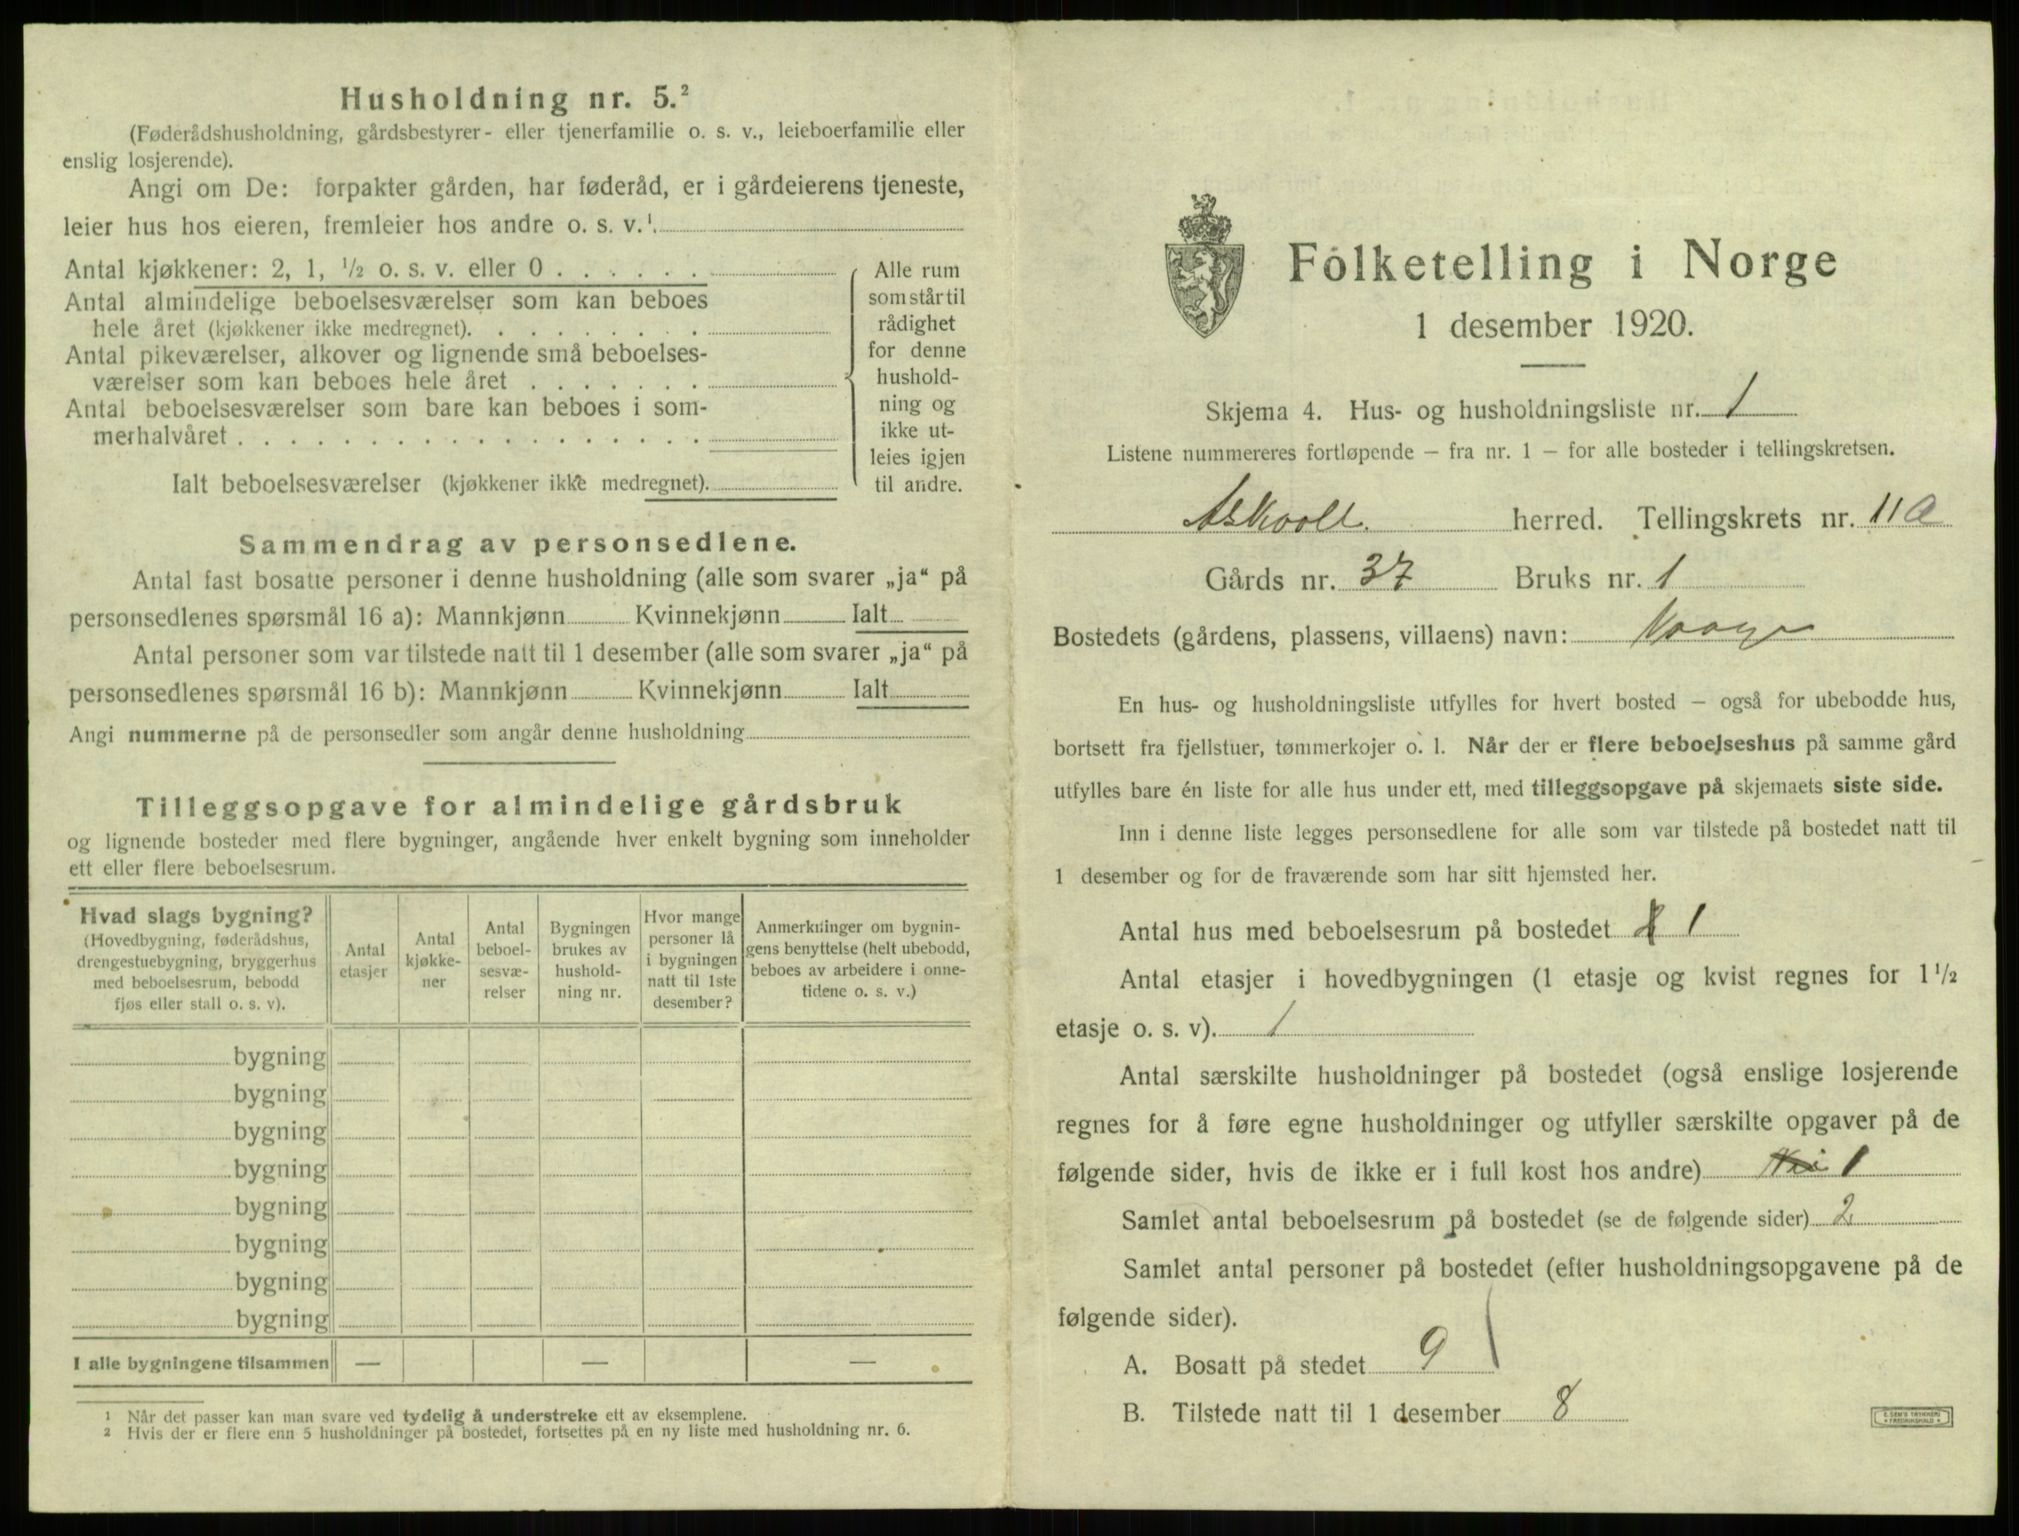 Husholdning nr. 5.²
(Føderådshusholdning, gårdsbestyrer- eller tjenerfamilie o. s. v., leieboerfamilie eller
enslig losjerende).
Angi om De: forpakter gården, har føderåd, er i gårdeierens tjeneste,
leier hus hos eieren, fremleier hos andre o. s. v.¹
Antal kjøkkener: 2, 1, ½ o. s. v. eller 0 . . . . . .
Antal almindelige beboelsesværelser som kan beboes
hele året (kjøkkener ikke medregnet). . . . . . . .
Antal pikeværelser, alkover og lignende små beboelses-
værelser som kan beboes hele året . . . . . . .
Antal beboelsesværelser som bare kan beboes i som-
merhalvåret . . . . . . . . . . . . . . . . . .
Ialt beboelsesværelser (kjøkkener ikke medregnet).
Alle rum
som står til
rådighet
for denne
hushold-
ning og
ikke ut-
leies igjen
til andre.
Sammendrag av personsedlene.
Antal fast bosatte personer i denne husholdning (alle som svarer „ja“ på
personsedlenes spørsmål 16 a): Mannkjønn Kvinnekjønn Ialt
Antal personer som var tilstede natt til 1 desember (alle som svarer „ja“ på
personsedlenes spørsmål 16 b): Mannkjønn Kvinnekjønn Ialt
Angi nummerne på de personsedler som angår denne husholdning
Tilleggsopgave for almindelige gårdsbruk
og lignende bosteder med flere bygninger, angående hver enkelt bygning som inneholder
ett eller flere beboelsesrum.
Hvad slags bygning?
(Hovedbygning, føderådshus,
drengestuebygning, bryggerhus
med beboelsesrum, bebodd
fjøs eller stall o. s. v).
Antal
etasjer
Antal
kjøkke-
ner
Antal
beboel-
sesvæ-
relser
Bygningen
brukes av
hushold-
ning nr.
Hvor mange
personer lå
i bygningen
natt til 1ste
desember?
Anmerkninger om bygnin-
gens benyttelse (helt ubebodd,
beboes av arbeidere i onne-
tidene o. s. v.)
bygning
bygning
bygning
bygning
bygning
bygning
bygning
bygning
I alle bygningene tilsammen — — —
¹ Når det passer kan man svare ved tydelig å understreke ett av eksemplene.
² Hvis der er flere enn 5 husholdninger på bostedet, fortsettes på en ny liste med husholdning nr. 6.
Folketelling i Norge
1 desember 1920.
Skjema 4. Hus- og husholdningsliste nr. 1
Listene nummereres fortløpende – fra nr. 1 – for alle bosteder i tellingskretsen.
Askvoll herred. Tellingskrets nr. 11a
Gårds nr. 37 Bruks nr. 1
Bostedets (gårdens, plassens, villaens) navn: Vaage
En hus- og husholdningsliste utfylles for hvert bosted – også for ubebodde hus,
bortsett fra fjellstuer, tømmerkojer o. l. Når der er flere beboelseshus på samme gård
utfylles bare én liste for alle hus under ett, med tilleggsopgave på skjemaets siste side.
Inn i denne liste legges personsedlene for alle som var tilstede på bostedet natt til
1 desember og for de fraværende som har sitt hjemsted her.
Antal hus med beboelsesrum på bostedet 1
Antal etasjer i hovedbygningen (1 etasje og kvist regnes for 1½
etasje o. s. v). 1
Antal særskilte husholdninger på bostedet (også enslige losjerende
regnes for å føre egne husholdninger og utfyller særskilte opgaver på de
følgende sider, hvis de ikke er i full kost hos andre) Nei 1
Samlet antal beboelsesrum på bostedet (se de følgende sider) 2
Samlet antal personer på bostedet (efter husholdningsopgavene på de
følgende sider).
A. Bosatt på stedet 9
B. Tilstede natt til 1 desember 8
E. SEM'S TRYKKERI
FREDRIKSHALD